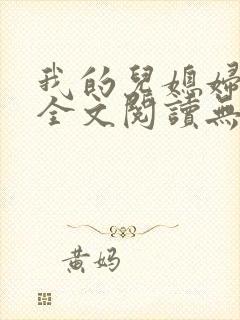 我的兒媳婦
全文閱讀無
黃妈